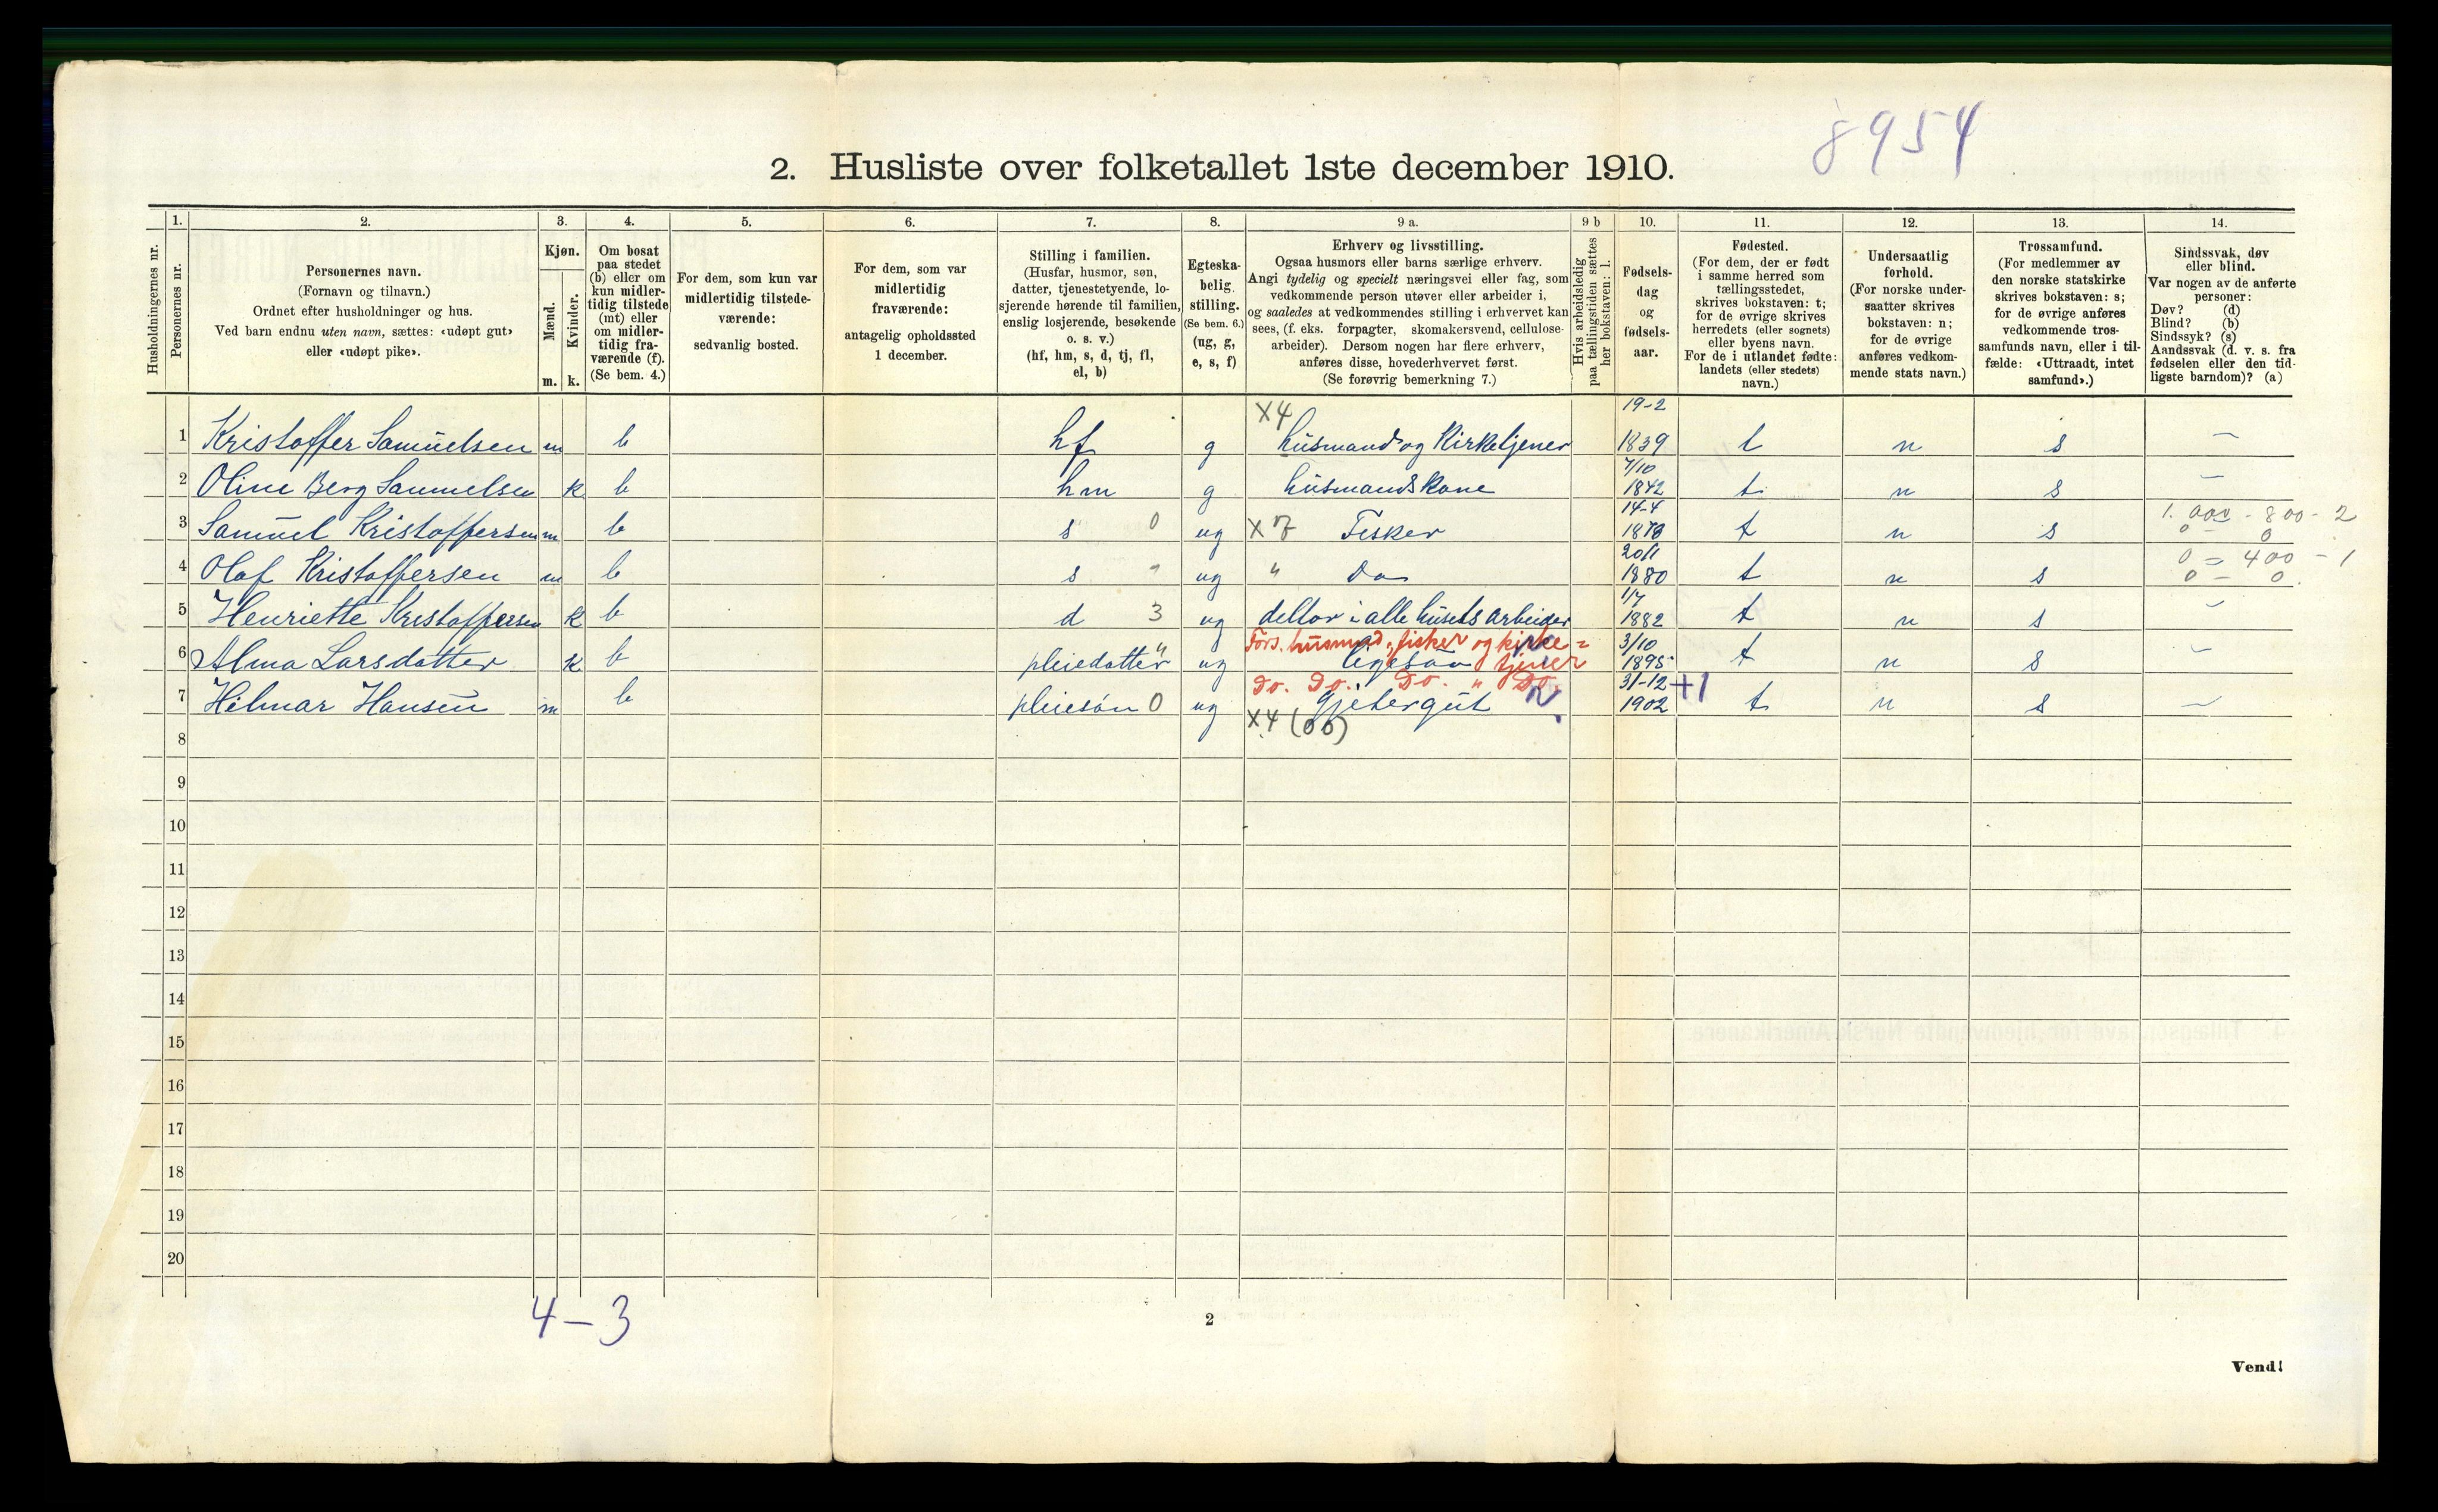 8954
2. Husliste over folketallet 1ste december 1910.
Husholdningernes nr.
1.
Personernes nr.
2.
Personernes navn.
(Fornavn og tilnavn.)
Ordnet efter husholdninger og hus.
Ved barn endnu uten navn, sættes: «udøpt gut»
eller «udøpt pike».
3.
Kjøn.
Mænd.
Kvinder.
m. k.
4.
Om bosat
paa stedet
(b) eller om
kun midler-
tidig tilstede
(mt) eller
om midler-
tidig fra-
værende (f).
(Se bem. 4.)
5.
For dem, som kun var
midlertidig tilstede-
værende:
sedvanlig bosted.
6.
For dem, som var
midlertidig
fraværende:
antagelig opholdssted
1 december.
7.
Stilling i familien.
(Husfar, husmor, søn,
datter, tjenestetyende, lo-
sjerende hørende til familien,
enslig losjerende, besøkende
o. s. v.)
(hf, hm, s, d, tj, fl,
el, b)
8.
Egteska-
belig
stilling.
(Se bem. 6.)
(ug, g,
e, s, f)
9 a.
Erhverv og livsstilling.
Ogsaa husmors eller barns særlige erhverv.
Angi tydelig og specielt næringsvei eller fag, som
vedkommende person utøver eller arbeider i,
og saaledes at vedkommendes stilling i erhvervet kan
sees, (f. eks. forpagter, skomakersvend, cellulose-
arbeider). Dersom nogen har flere erhverv,
anføres disse, hovederhvervet først.
(Se forøvrig bemerkning 7.)
9 b
Hvis arbeidsledig
paa tællingstiden sættes
her bokstaven: l.
10.
Fødsels-
dag
og
fødsels-
aar.
11.
Fødested.
(For dem, der er født
i samme herred som
tællingsstedet,
skrives bokstaven: t;
for de øvrige skrives
herredets (eller sognets)
eller byens navn.
For de i utlandet fødte:
landets (eller stedets)
navn.)
12.
Undersaatlig
forhold.
(For norske under-
saatter skrives
bokstaven: n;
for de øvrige
anføres vedkom-
mende stats navn.)
13.
Trossamfund.
(For medlemmer av
den norske statskirke
skrives bokstaven: s;
for de øvrige anføres
vedkommende tros-
samfunds navn, eller i til-
fælde: «Uttraadt, intet
samfund».)
14.
Sindssvak, døv
eller blind.
Var nogen av de anførte
personer:
Døv? (d)
Blind? (b)
Sindssyk? (s)
Aandssvak (d. v. s. fra
fødselen eller den tid-
ligste barndom)? (a)
X4 19-2
1 Kristoffer Samuelsen m b hf g husmand og Kirketjener 1839 t n s —
7/10
2 Oline Berg Samuelsen k b hm g husmandskone 1842 t. n s —
14-4 1.000 - 800 - 2
3 Samuel Kristoffersen m b s 0 ug X7 Fisker 1878 t n s 0 - 0
20/1 0 = 400 - 1
4 Olaf Kristoffersen m b s " ug " do 1880 t n s 0 - 0.
1/7
5 Henriette Kristoffersen k b d 3 ug deltar i alle husets arbeider 1882 t n s —
Fors. husmand, fisker og kirke= 3/10
6 Alma Larsdatter k b pleiedatter " ug ligesaa tjener 1895 t n s —
Do. Do. Do. " Do 31-12 +1
7 Hilmar Hansen m b pleiesøn 0 ug gjetergut 1902 t. n s —
X4 (bb)
8
9
10
11
12
13
14
15
16
17
18
19
20
4 – 3
2
Vend!